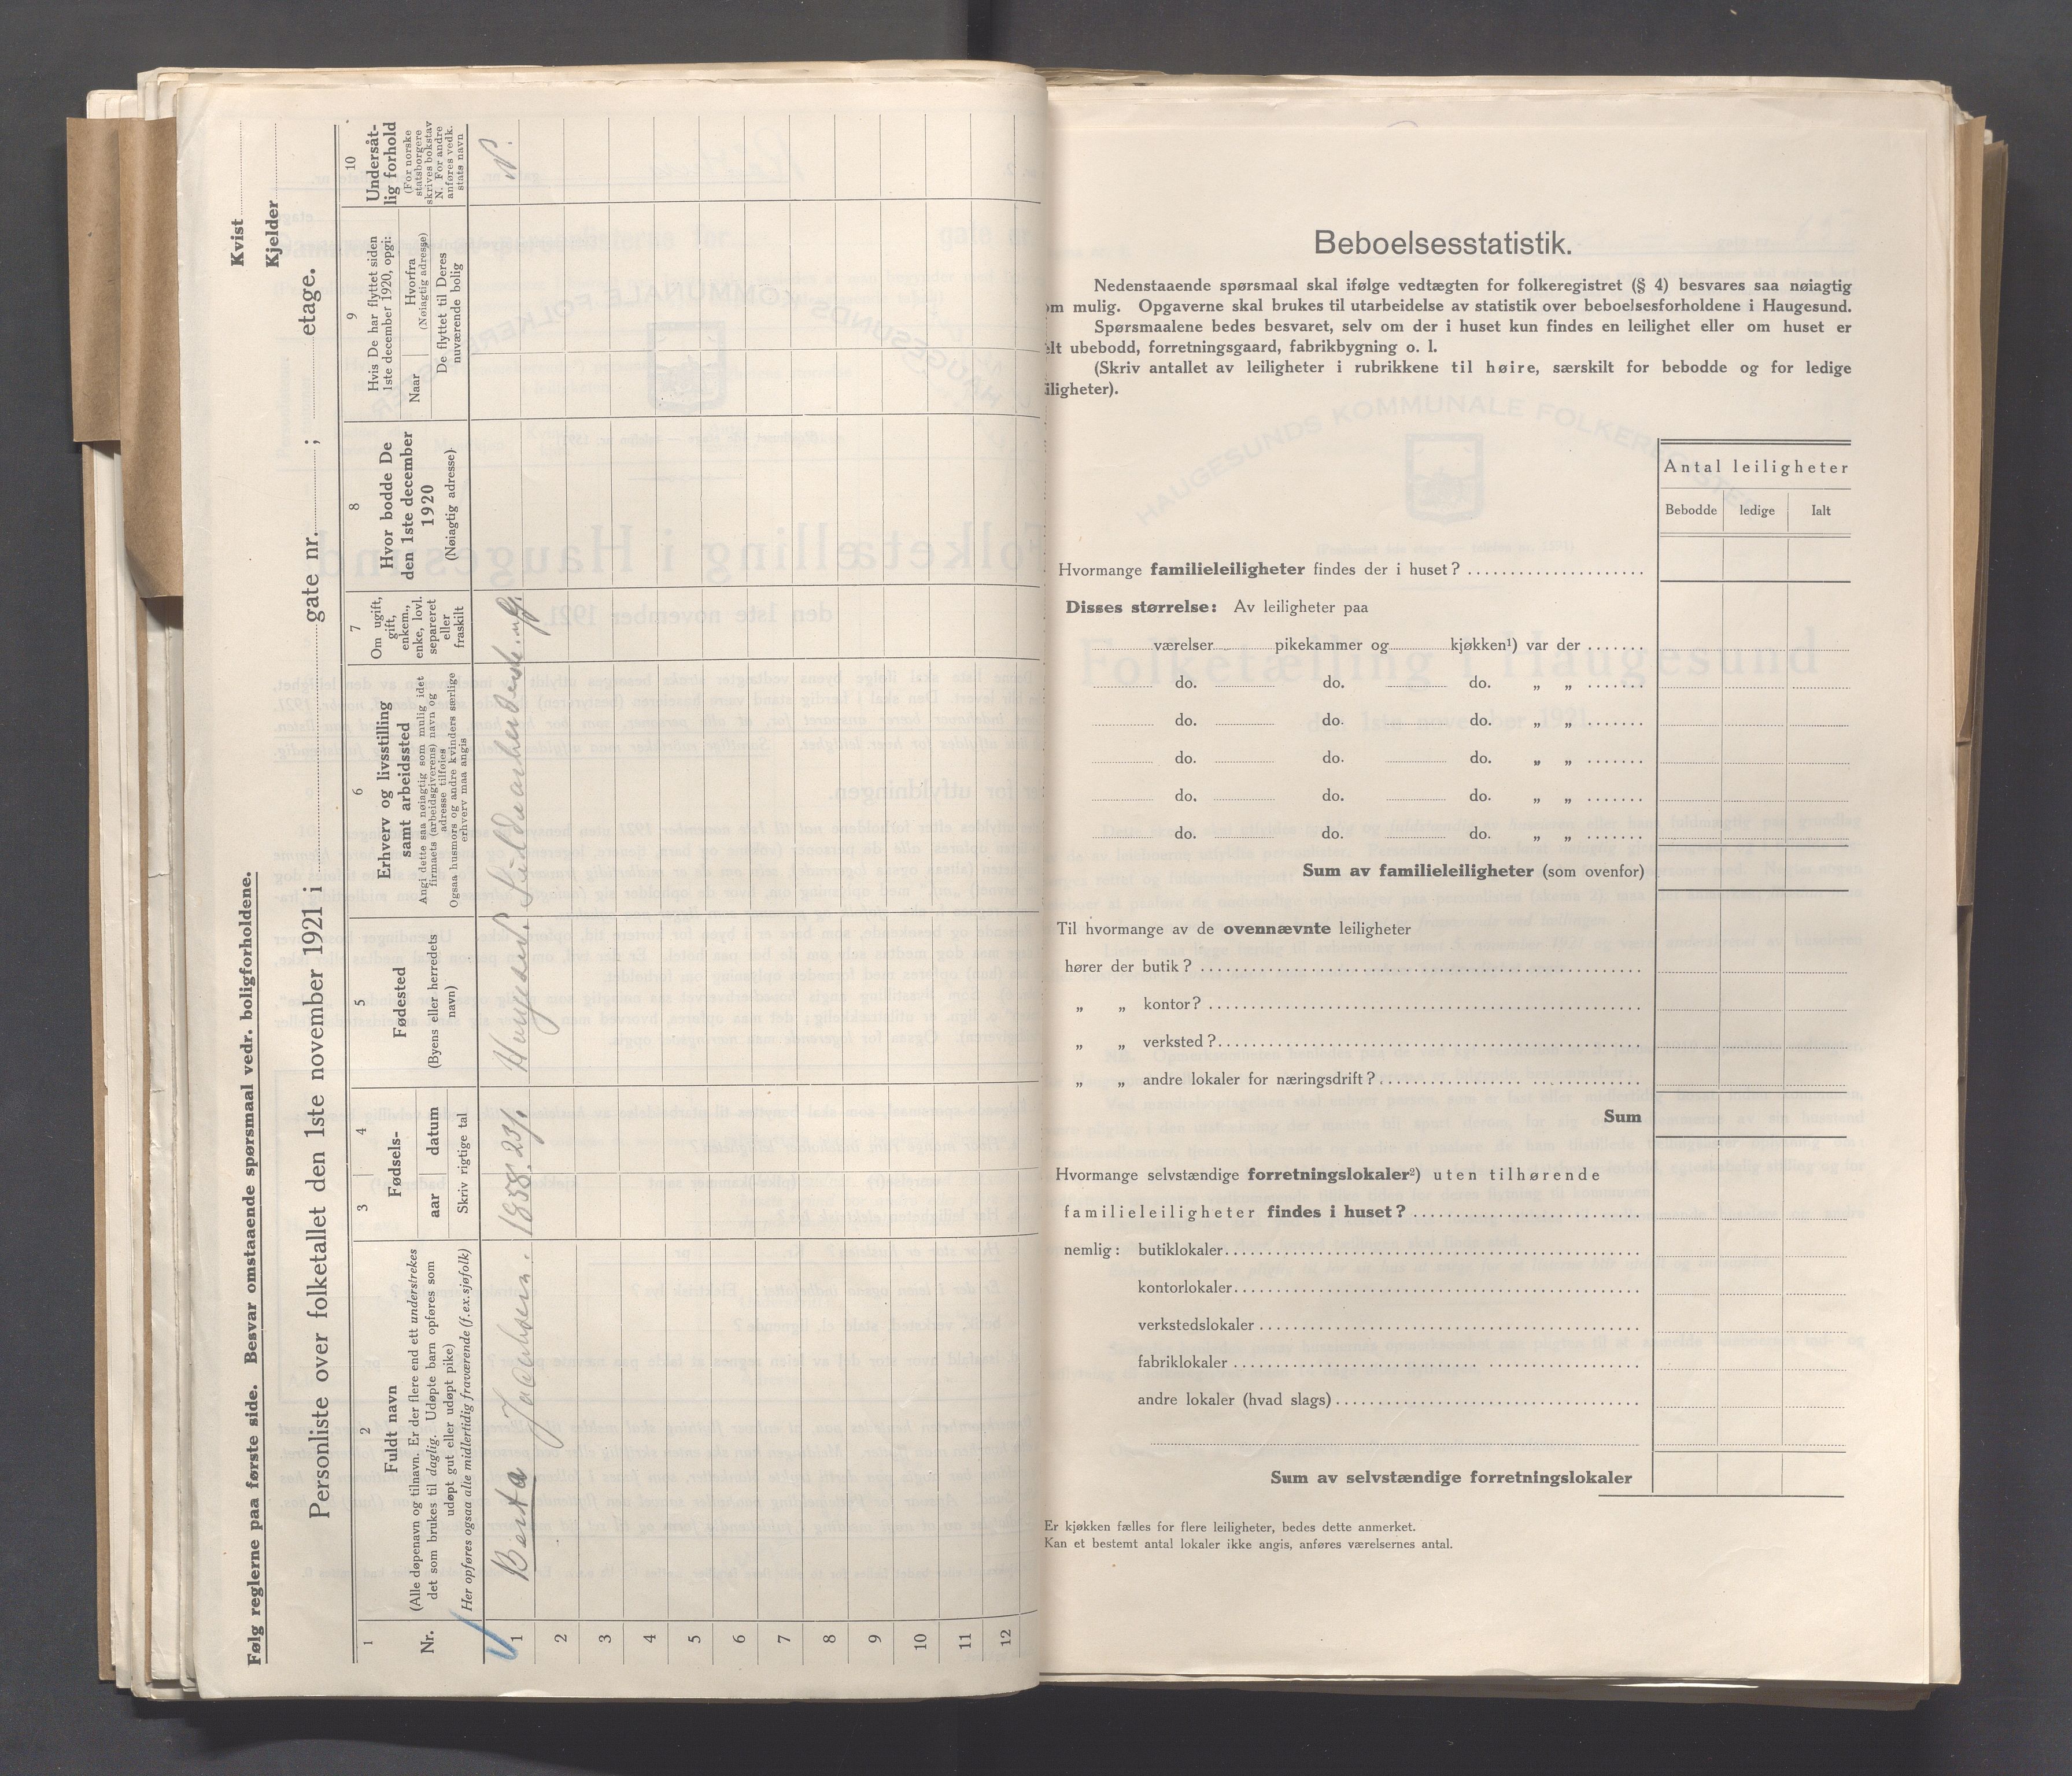 Følg reglerne paa første side. Besvar omstaaende spørsmaal vedr. boligforholdene.
Kvist
Kjelder
Personliste over folketallet den 1ste november 1921 i gate nr. ; etage.
1
Nr.
2
Fuldt navn
(Alle døpenavn og tilnavn. Er der flere end ett understrekes
det som brukes til daglig. Udøpte barn opføres som
udøpt gut eller udøpt pike)
Her opføres ogsaa alle midlertidig fraværende (f.ex. sjøfolk)
3
4
Fødsels-
aar
datum
Skriv rigtige tal
5
Fødested
(Byens eller herredets
navn)
6
Erhverv og livsstilling
samt arbeidssted
Angi dette saa nøiagtig som mulig idet
firmaets (arbeidsgiverens) navn og
adresse tilføies
Ogsaa husmors og andre kvinders særlige
erhverv maa angis
7
Om ugift,
gift,
enkem.,
enke, lovl.
separeret
eller
fraskilt
8
Hvor bodde De
den 1ste december
1920
(Nøiagtig adresse)
9
Hvis De har flyttet siden
1ste december 1920, opgi:
Naar
Hvorfra
(Nøiagtig adresse)
De flyttet til Deres
nuværende bolig
10
Undersåt-
lig forhold
(For norske
statsborgere
skrives bokstav
N. For andre
anføres vedk.
stats navn
1 Berta Jacobsen. 1858. 23/. Haugesund. ug. N.
2
3
4
5
6
7
8
9
10
11
12
Beboelsesstatistik.
Nedenstaaende spørsmaal skal ifølge vedtægten for folkeregistret (§ 4) besvares saa nøiagtig
om mulig. Opgaverne skal brukes til utarbeidelse av statistik over beboelsesforholdene i Haugesund.
Spørsmaalene bedes besvaret, selv om der i huset kun findes en leilighet eller om huset er
elt ubebodd, forretningsgaard, fabrikbygning o. l.
(Skriv antallet av leiligheter i rubrikkene til høire, særskilt for bebodde og for ledige
iligheter).
Antal leiligheter
Bebodde ledige Ialt
Hvormange familieleiligheter findes der i huset?
Disses størrelse: Av leiligheter paa
værelser pikekammer og kjøkken¹) var der
do. do. do. „ „
do. do. do. „ „
do. do. do. „ „
do. do. do. „ „
do. do. do. „ „
Sum av familieleiligheter (som ovenfor)
Til hvormange av de ovennævnte leiligheter
hører der butik?
„ „ kontor?
„ „ verksted?
„ „ andre lokaler for næringsdrift?
Sum
Hvormange selvstændige forretningslokaler²) uten tilhørende
familieleiligheter findes i huset?
nemlig: butiklokaler
kontorlokaler
verkstedslokaler
fabriklokaler
andre lokaler (hvad slags)
Sum av selvstændige forretningslokaler
Er kjøkken fælles for flere leiligheter, bedes dette anmerket.
Kan et bestemt antal lokaler ikke angis, anføres værelsernes antal.